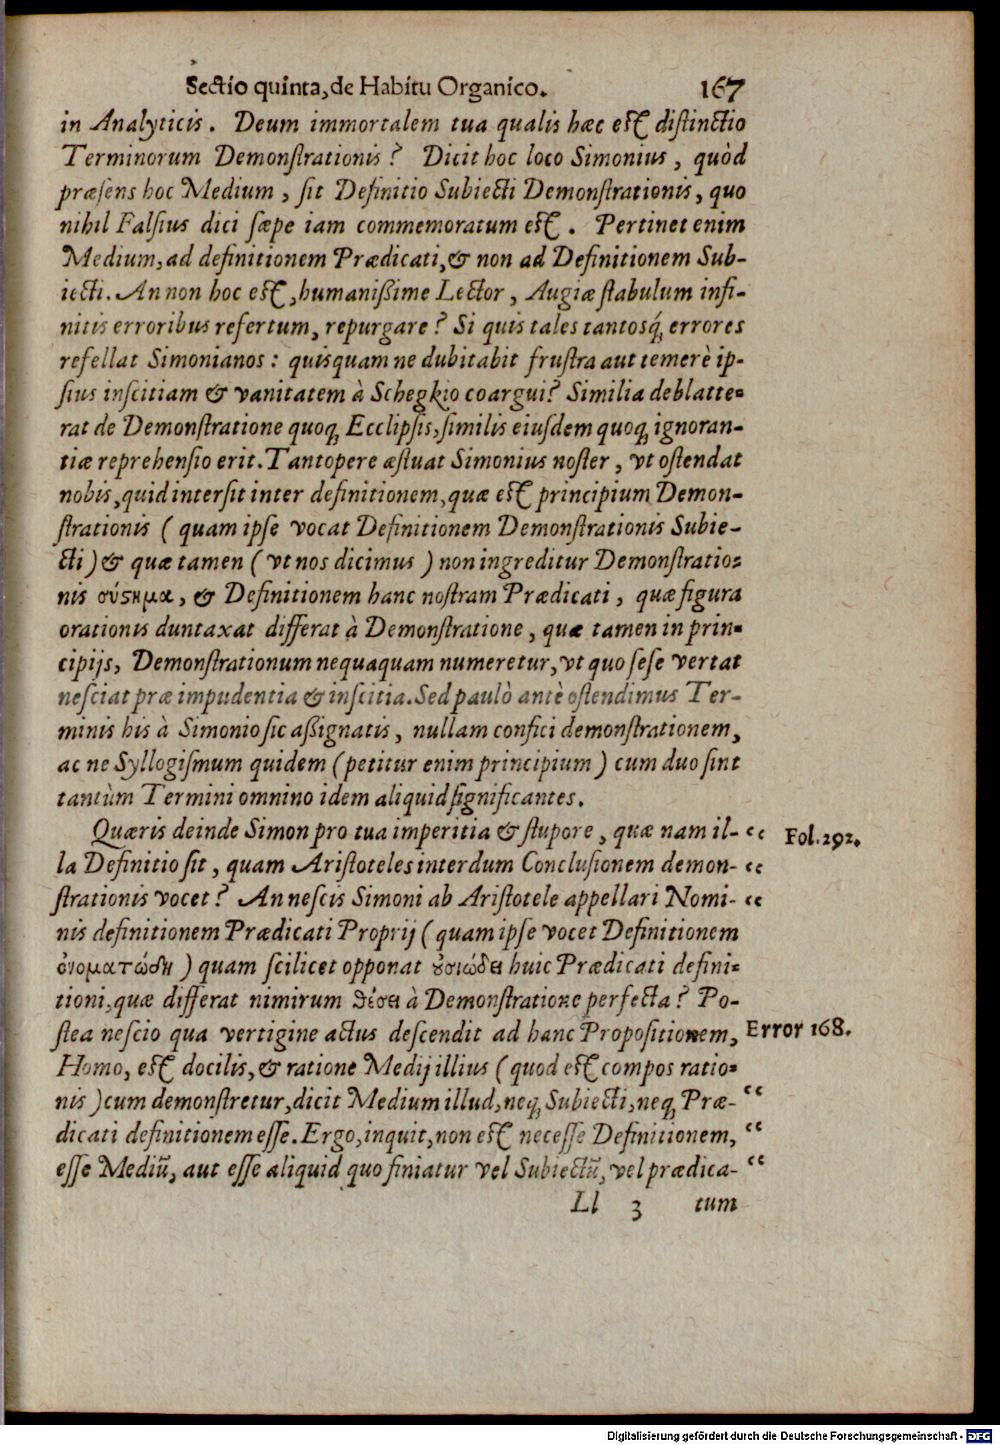 Sectio quinta, de Habitu Organico. 167
in Analyticis. Deum immortalem tua qualis hæc est distinctio
Terminorum Demonstrationis? Dicit hoc loco Simonius, quòd
præsens hoc Medium, sit Definitio Subiecti Demonstrationis, quo
nihil Falsius dici sæpe iam commemoratum est. Pertinet enim
Medium, ad definitionem Prædicati, & non ad Definitionem Sub-
iecti. An non hoc est, humanißime Lector, Augiæ stabulum infi-
nitis erroribus refertum, repurgare? Si quis tales tantosq́; errores
refellat Simonianos: quisquam ne dubitabit frustra aut temerè ip-
sius inscitiam & vanitatem à Schegkio coargui? Similia deblatte-
rat de Demonstratione quoq; Ecclipsis, similis eiusdem quoq; ignoran-
tiæ reprehensio erit. Tantopere æstuat Simonius noster, vt ostendat
nobis, quid intersit inter definitionem, quæ est principium Demon-
strationis (quam ipse vocat Definitionem Demonstrationis Subie-
cti) & quæ tamen (vt nos dicimus) non ingreditur Demonstratio-
nis σύϛημα, & Definitionem hanc nostram Prædicati, quæ figura
orationis duntaxat differat à Demonstratione, quæ tamen in prin-
cipijs, Demonstrationum nequaquam numeretur, vt quo sese vertat
nesciat præ impudentia & inscitia. Sed paulò antè ostendimus Ter-
minis his à Simonio sic aßignatis, nullam confici demonstrationem,
ac ne Syllogismum quidem (petitur enim principium) cum duo sint
tantùm Termini omnino idem aliquid significantes.
Quæris deinde Simon pro tua imperitia & stupore, quæ nam il- “ Fol. 292.
la Definitio sit, quam Aristoteles interdum Conclusionem demon- “
strationis vocet? An nescis Simoni ab Aristotele appellari Nomi- “
nis definitionem Prædicati Proprij (quam ipse vocet Definitionem
ὀνοματώδη) quam scilicet opponat ȣσιώδει huic Prædicati defini-
tioni, quæ differat nimirum θέσει à Demonstratione perfecta? Po-
stea nescio qua vertigine actus descendit ad hanc Propositionem, Error 168.
Homo, est docilis, & ratione Medij illius (quod est compos ratio-
nis) cum demonstretur, dicit Medium illud, neq; Subiecti, neq; Præ- “
dicati definitionem esse. Ergo, inquit, non est necesse Definitionem, “
esse Mediũ, aut esse aliquid quo finiatur vel Subiectũ, vel prædica- “
Ll 3 tum
Digitalisierung gefördert durch die Deutsche Forschungsgemeinschaft - DFG